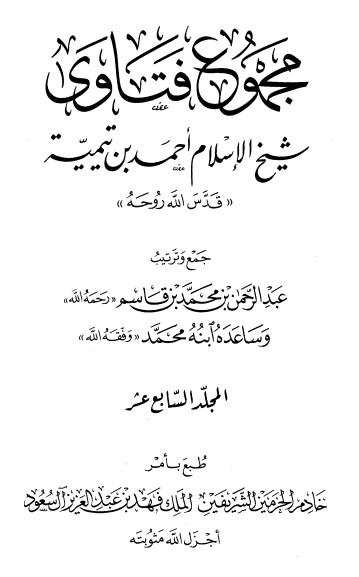 مجموع فتاوى
شيخ الإسلام أحمد بن تيمية
« قَدَّسَ اللَّه رُوحَهُ »
جَمْع وَتَرتيبُ
عَبد الرَّحمٰن بن محمَّد بن قاسم «رَحمَهُ اللَّه»
وَسَاعَدَهُ ابنُهُ محمَّد «وَفّقَهُ اللَّه»
المجلّد السّابع عشر
طُبعَ بأمْر
خَادِم الحَرمَين الشَّريفَين الملك فَهد بن عَبد العَزيز آل سُعود
أجْزَل اللَّه مَثوبتَه